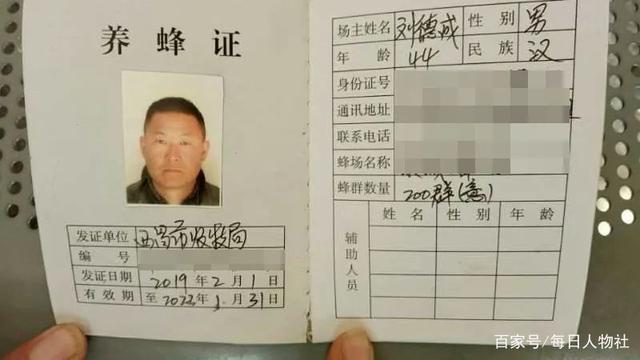 养蜂证
发证单位 西昌市农牧局
编号
发证日期 2019年2月1日
有效期 至2022年1月31日
场主姓名 刘德成 性别 男
年龄 44 民族 汉
身份证号
通讯地址
联系电话
蜂场名称
蜂群数量 200群(意)
辅助人员
姓名 性别 年龄
百家号/每日人物社